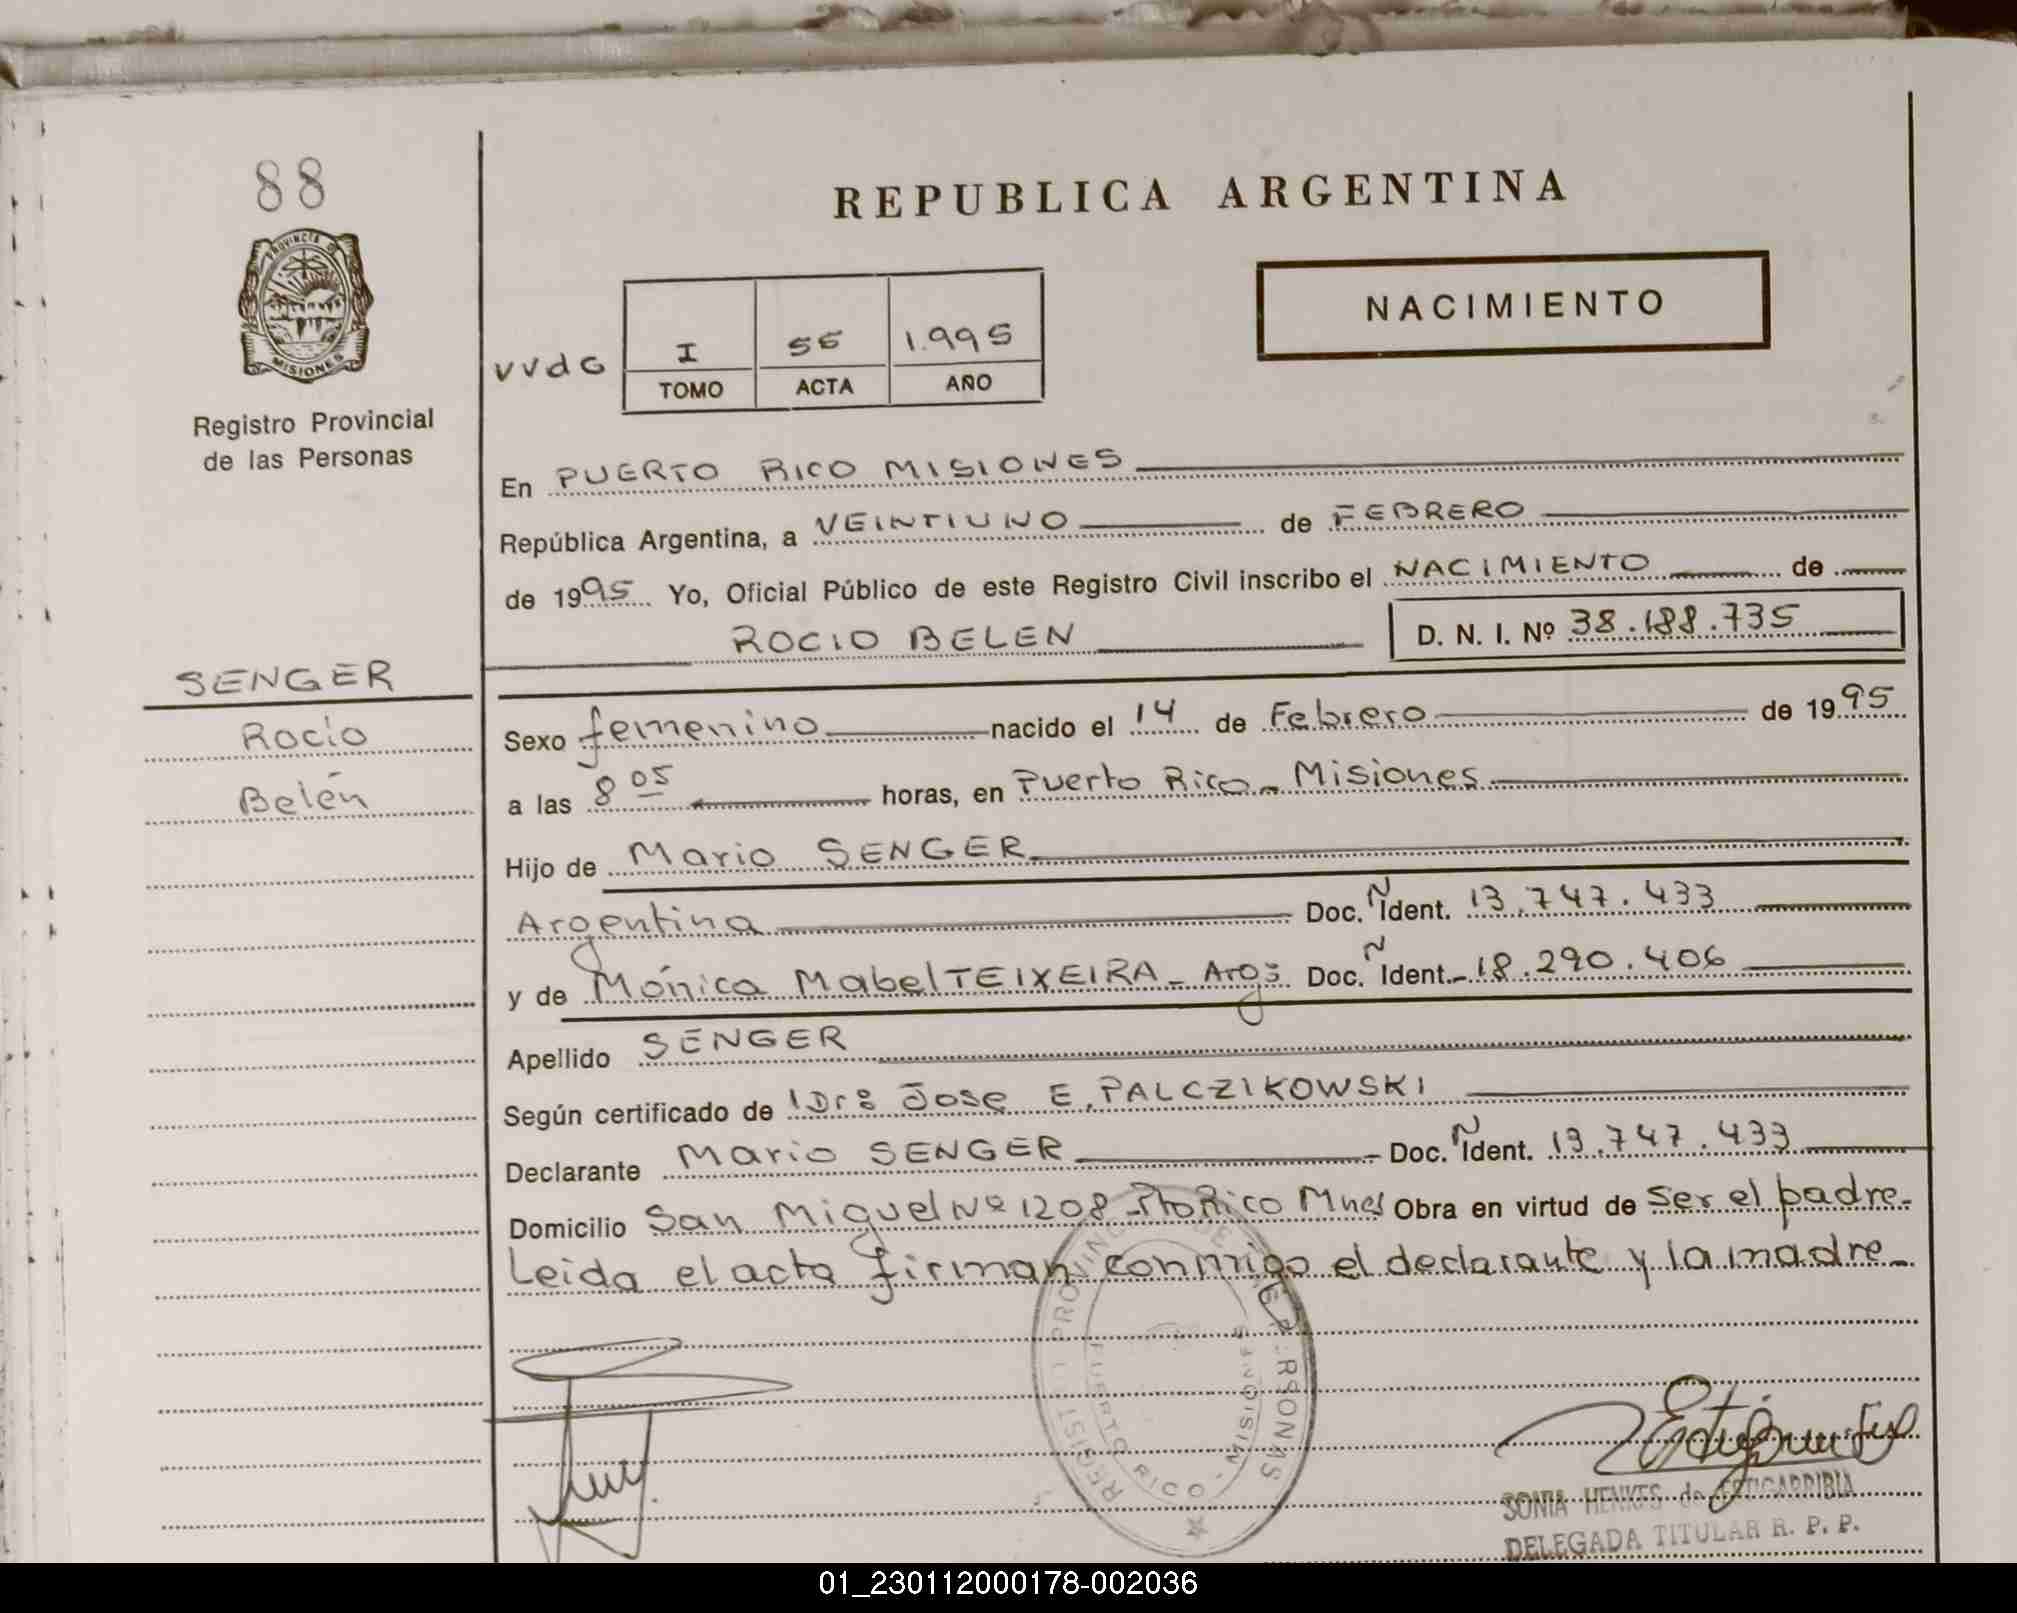 88
PROVINCIA DE
MISIONES
Registro Provincial
de las Personas
SENGER
Rocío
Belén
REPUBLICA ARGENTINA
NACIMIENTO
VVdG
I 56 1.995
TOMO ACTA AÑO
En PUERTO RICO MISIONES
República Argentina, a VEINTIUNO de FEBRERO
de 1995 Yo, Oficial Público de este Registro Civil inscribo el NACIMIENTO de
ROCIO BELEN D. N. I. Nº 38.188.735
Sexo femenino nacido el 14 de Febrero de 1995
a las 8 05 horas, en Puerto Rico - Misiones
Hijo de Mario SENGER
Argentina Doc. Ñ Ident. 13.747.433
y de Mónica Mabel TEIXEIRA - Arg: Doc. Ñ Ident. 18.290.406
Apellido SENGER
Según certificado de Dr: Jose E. PALCZIKOWSKI
Declarante Mario SENGER Doc. Ñ Ident. 13.747.433
Domicilio San Miguel Nº 1208 - Pto Rico Mnes Obra en virtud de ser el padre.
Leida el acta firman conmigo el declarante y la madre
PUERTO RICO - MISIONES
SONIA HENKES de ESTIGARRIBIA
DELEGADA TITULAR R. P. P.
01_230112000178-002036